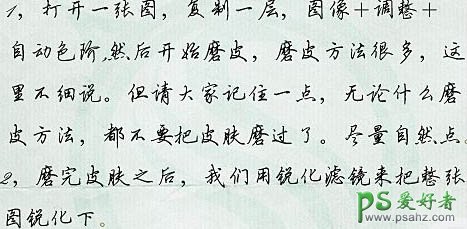 1，打开一张图，复制一层，图像+调整+
自动色阶,然后开始磨皮，磨皮方法很多，这
里不细说。但请大家记住一点，无论什么磨
皮方法，都不要把皮肤磨过了。尽量自然点。
2，磨完皮肤之后，我们用锐化滤镜来把整张
图锐化下。
PS爱好者
www.psahz.com